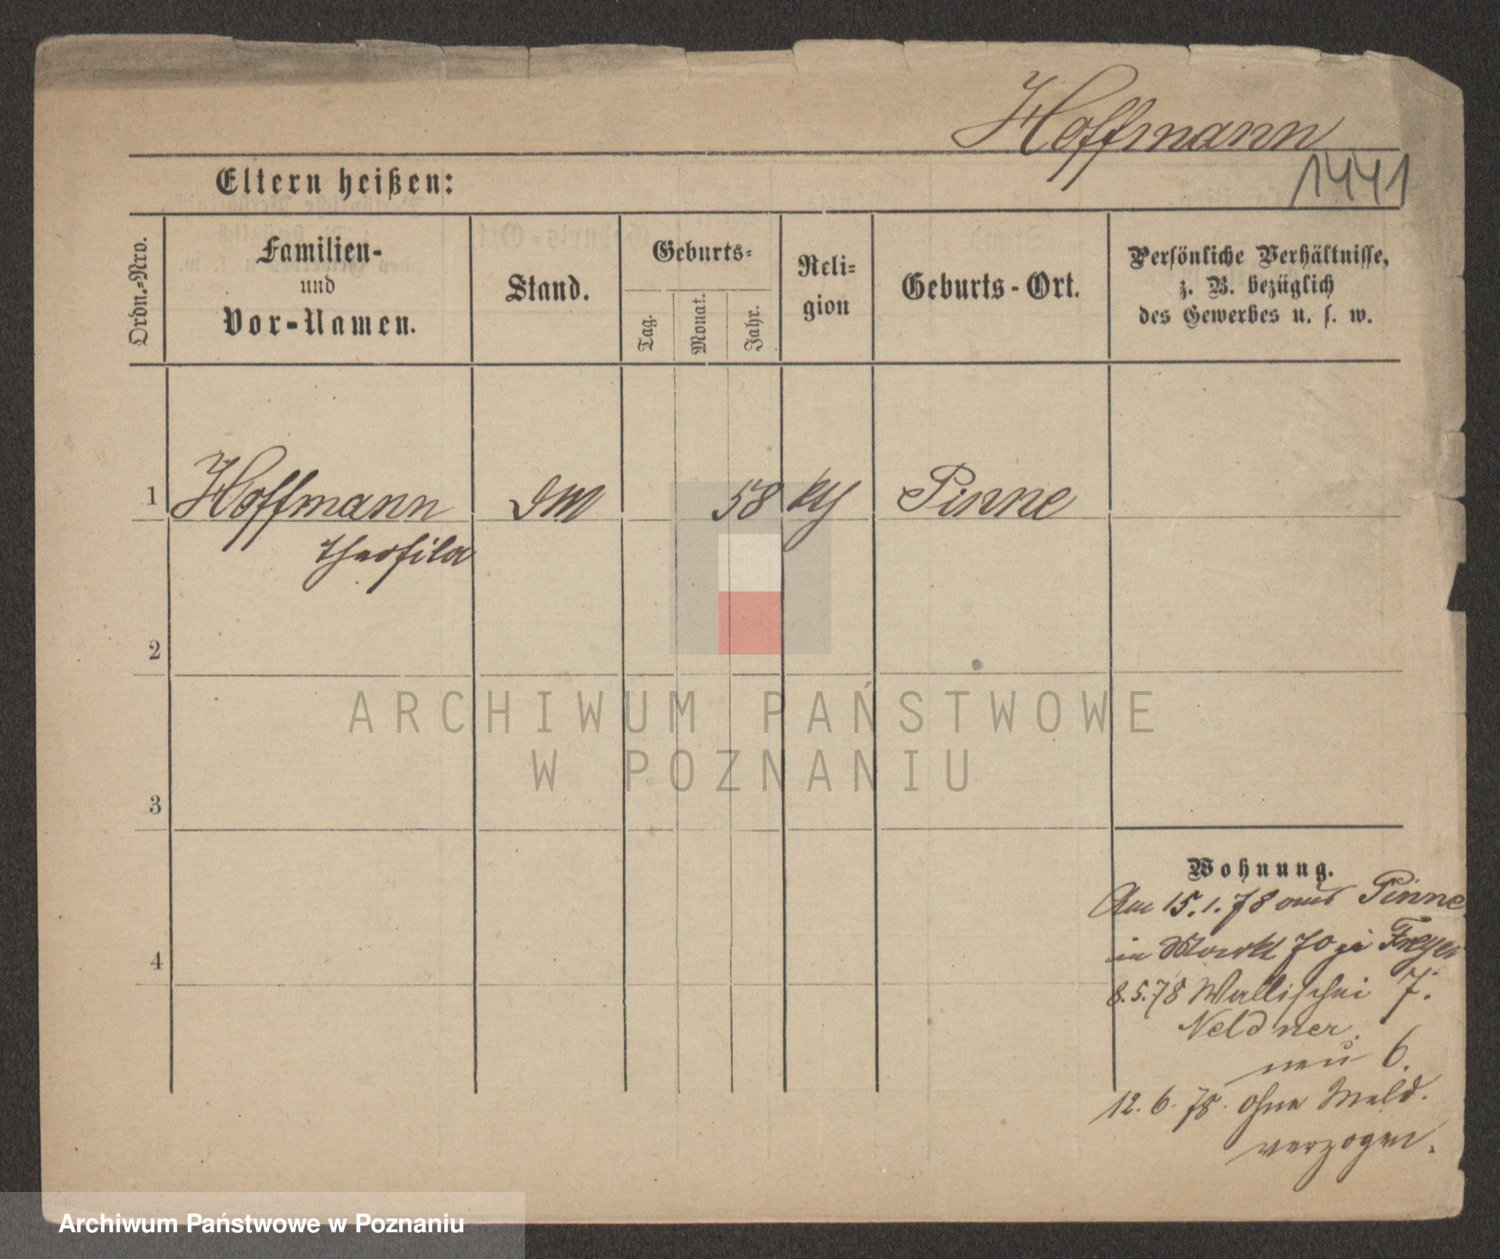 Hoffmann
1441
Eltern heißen:
Ordn.-Nro.
Familien-
und
Vor-Namen.
Stand.
Geburts-
Tag.
Monat.
Jahr.
Reli-
gion
Geburts-Ort.
Persönliche Verhältnisse,
z. B. bezüglich
des Gewerbes u. s. w.
1 Hoffmann DM 58 Pinne
Theofila
2
3
4
Wohnung.
Am 15.1.78 aus Pinne
in Markt 70
8.5.78 Wallischei 7.
Neldner.
neu 6.
12.6.78. ohne Meld.
verzogen.
ARCHIWUM PAŃSTWOWE
W POZNANIU
Archiwum Państwowe w Poznaniu